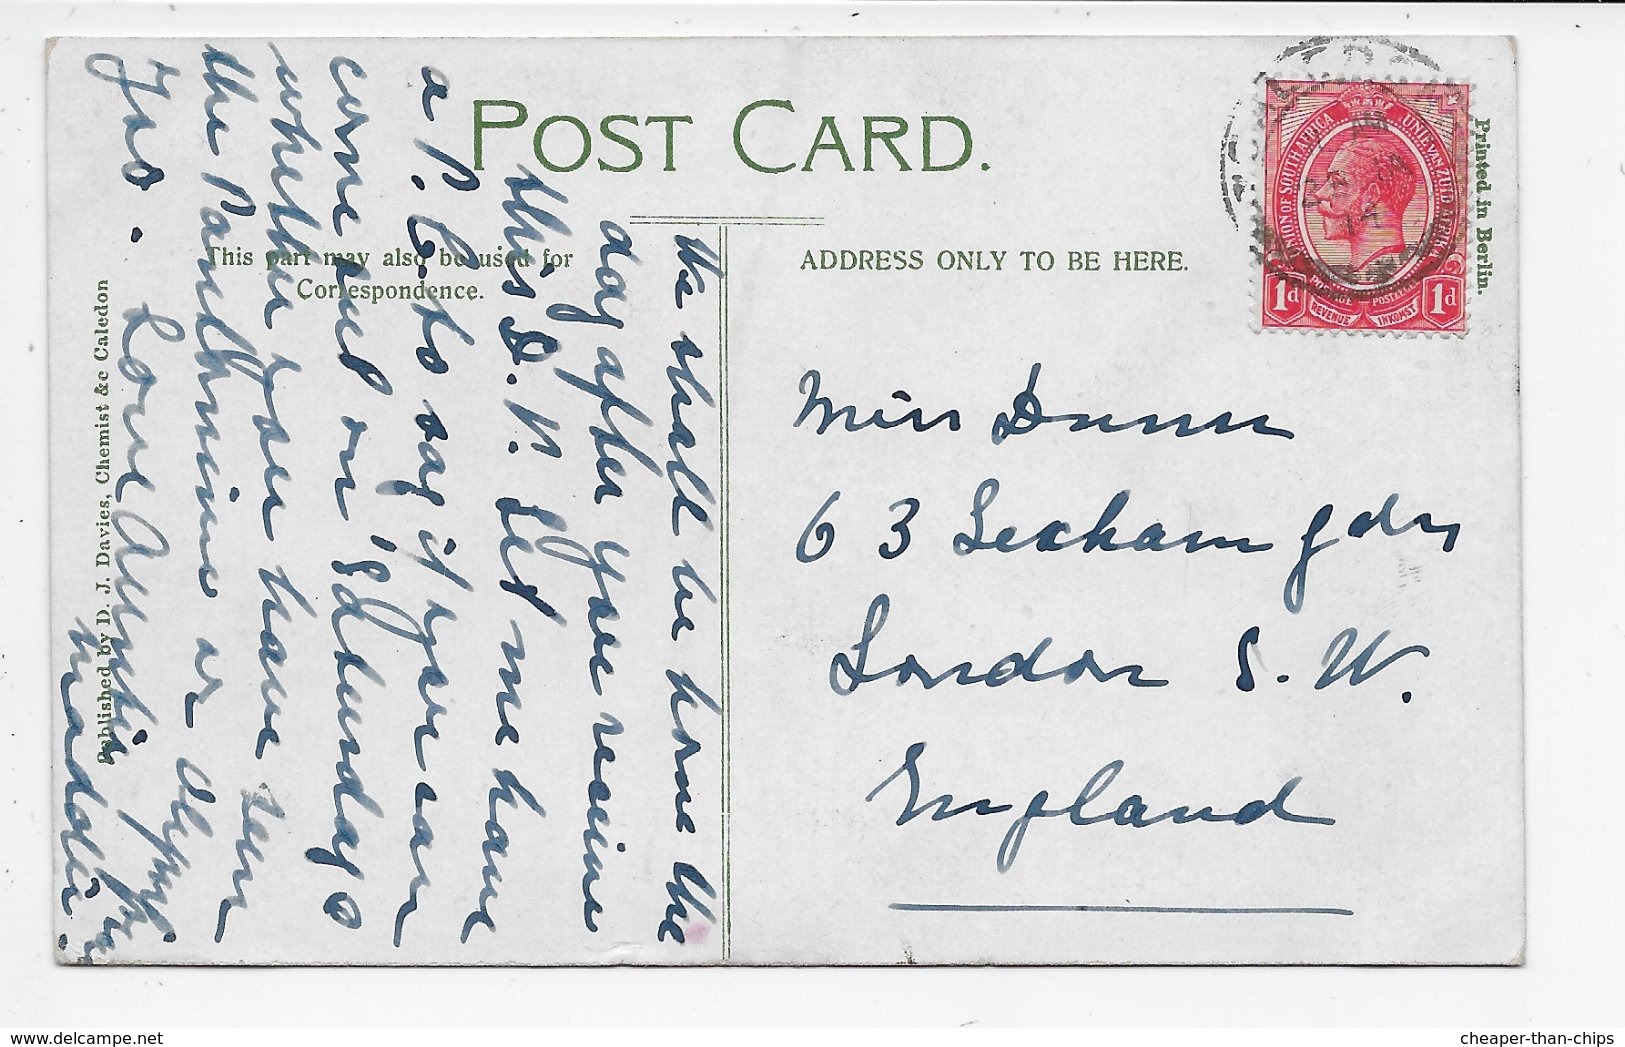 POST CARD.
This part may also be used for
Correspondence.
ADDRESS ONLY TO BE HERE.
Printed in Berlin.
Published by D. J. Davies, Chemist &c Caledon
UNION OF SOUTH AFRICA UNIE VAN ZUID AFRIKA
POSTAGE POSTZEGEL
REVENUE INKOMST
1d 1d
We shall be home the
day after you receive
this D.V. Let me have
a P.C. to say if you can
come out on Saturday &
whether you have seen
the Pankhurins or
Love Auntie
Maddie.
Miss Dunn
63 Lexham gdns
London S.W.
England
cheaper-than-chips